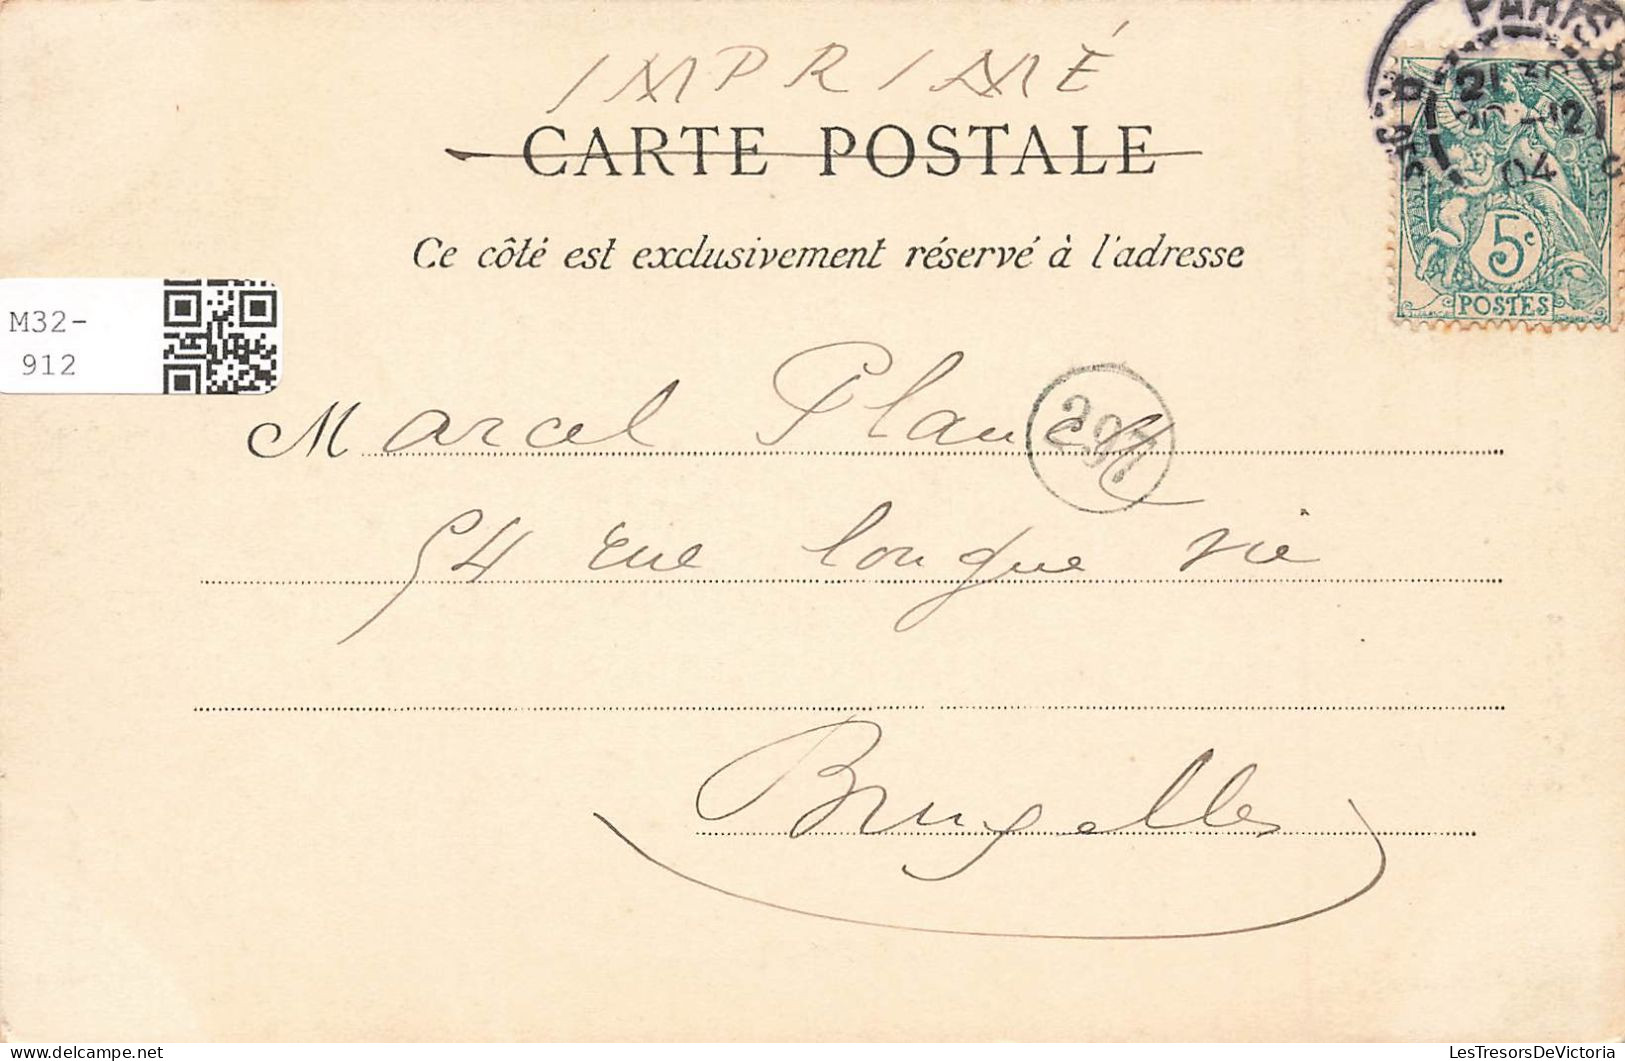 IMPRIMÉ
CARTE POSTALE
Ce côté est exclusivement réservé à l'adresse
PARIS
21
04
5c
POSTES
M32-
912
Marcel Planck
297
54 rue longue vie
Bruxelles
LesTresorsDeVictoria